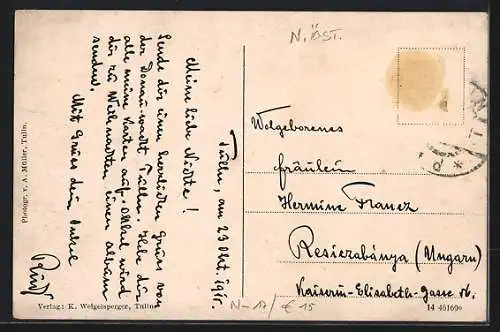 N. ÖST.
Tulln, am 23 Okt. 1915
Meine liebe Nichte!
Sende dir einen herzlichen Gruss von
der Donaustadt Tulln. Hebe dir
alle meine Karten auf. Onkel wird
dir zu Weihnachten einen Album
senden.
Mit Gruss dein Onkel
Rudolf
Wolgeborenes
fräulein
Hermine Francz
Resiczabánya (Ungarn)
Kaiserin-Elisabeth-Gasse 16.
Photogr. v. A. Müller, Tulln.
Verlag: K. Welgelsperger, Tulln
14 45169
N-17/€15